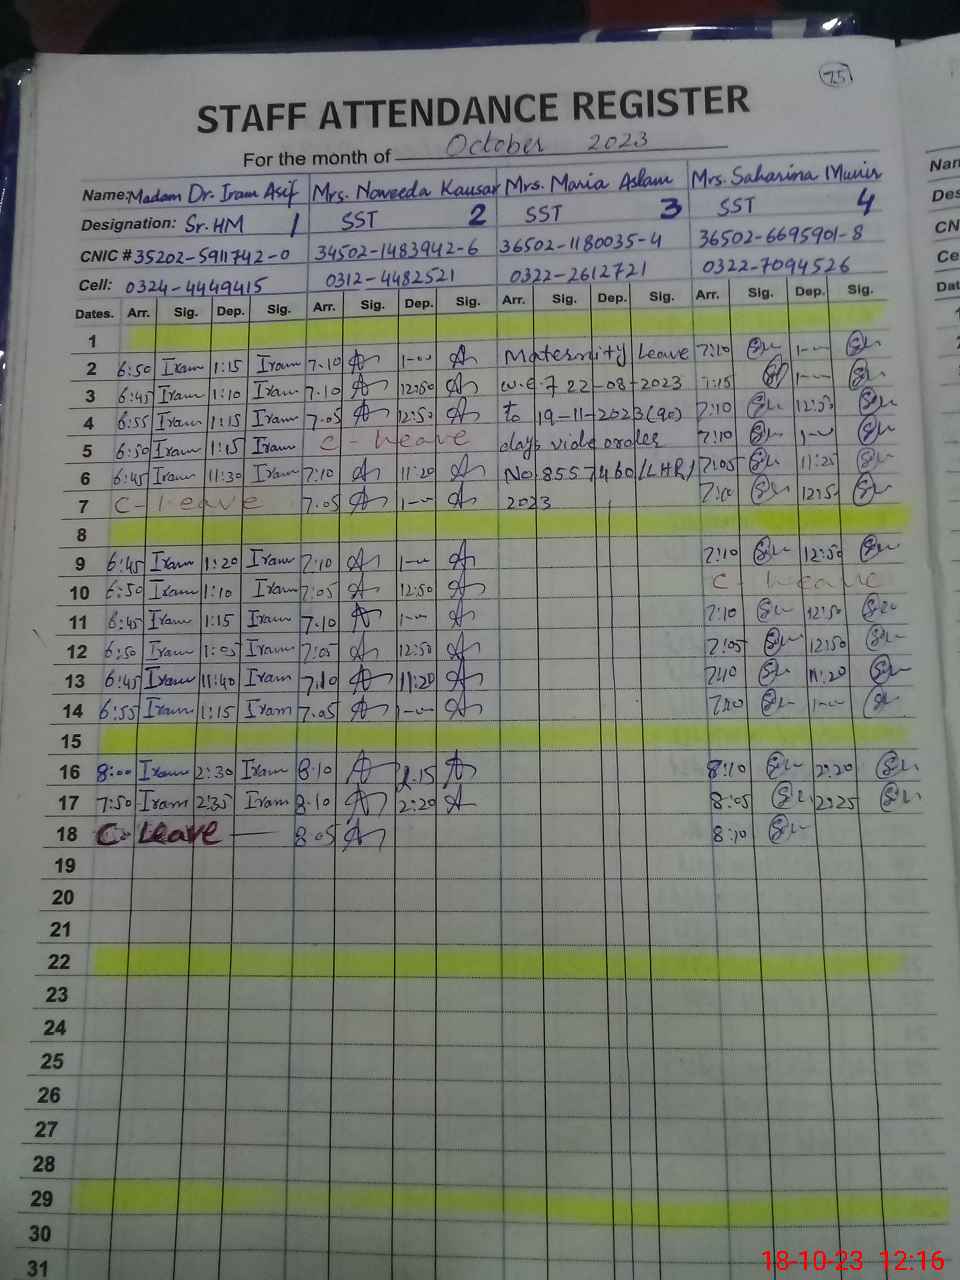 75
STAFF ATTENDANCE REGISTER
For the month of October 2023
Name: Madam Dr. Iram Asif Mrs. Noveeda Kausar Mrs. Maria Aslam Mrs. Saharina Munir
Designation: Sr. HM 1 SST 2 SST 3 SST 4
CNIC # 35202-5911742-0 34502-1483942-6 36502-1180035-4 36502-6695901-8
Cell: 0324-4449415 0312-4482521 0322-2612721 0322-7094526
Dates. Arr. Sig. Dep. Sig. Arr. Sig. Dep. Sig. Arr. Sig. Dep. Sig. Arr. Sig. Dep. Sig.
1
2 6:50 Iram 1:15 Iram 7.10 1-00 Maternity Leave 7:10 1-00
3 6:45 Iram 1:10 Iram 7.10 12:50 22-08-2023 7:15 1-00
4 6:55 Iram 1:15 Iram 7.05 12:50 to 19-11-2023(90) 7:10 12:50
5 6:50 Iram 1:15 Iram C-Leave days vide order 7:10 1-00
6 6:45 Iram 11:30 Iram 7:10 11:20 No. 7:05 11:25
7 C-leave 7.05 1-00 2023 12:5
8
9 6:45 Iram 1:20 Iram 7:10 1-00 7:10 12:50
10 6:50 Iram 1:10 Iram 7:05 12:50 C-Leave
11 6:45 Iram 1:15 Iram 7.10 1-00 7:10 12:50
12 6:50 Iram 1:05 Iram 7:05 12:50 7:05 12:50
13 6:45 Iram 11:40 Iram 7.10 11:20 7:10 11:20
14 6:55 Iram 1:15 Iram 7.05 1-00 7:10 1-00
15
16 8:00 Iram 2:30 Iram 8.10 2.15 8:10 2:20
17 7:50 Iram 2:35 Iram 8.10 2:20 8:05 2:25
18 C-Leave 8.05 8:10
19
20
21
22
23
24
25
26
27
28
29
30
31
18-10-23 12:16